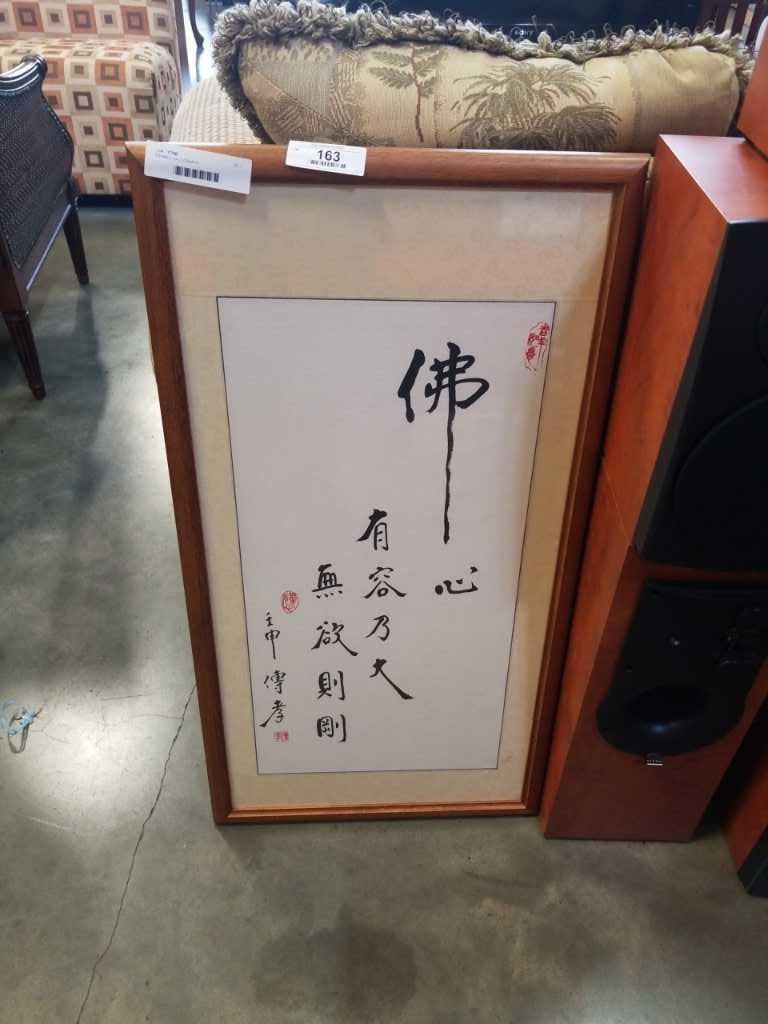 SONY
163
佛心
有容乃大
無欲則剛
壬申 傳孝